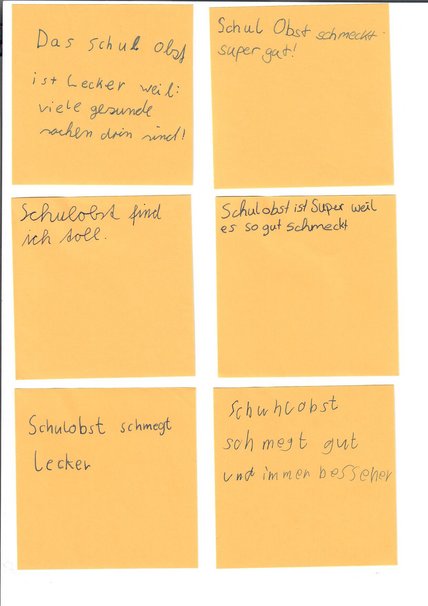 Das schul obst
ist Lecker weil:
viele gesunde
sachen drin sind!
Schul Obst schmeckt
super gut!
Schulobst find
ich toll.
Schulobst ist Super weil
es so gut schmeckt
Schulobst schmegt
Lecker
Schuhlobst
schmegt gut
und immer besseher